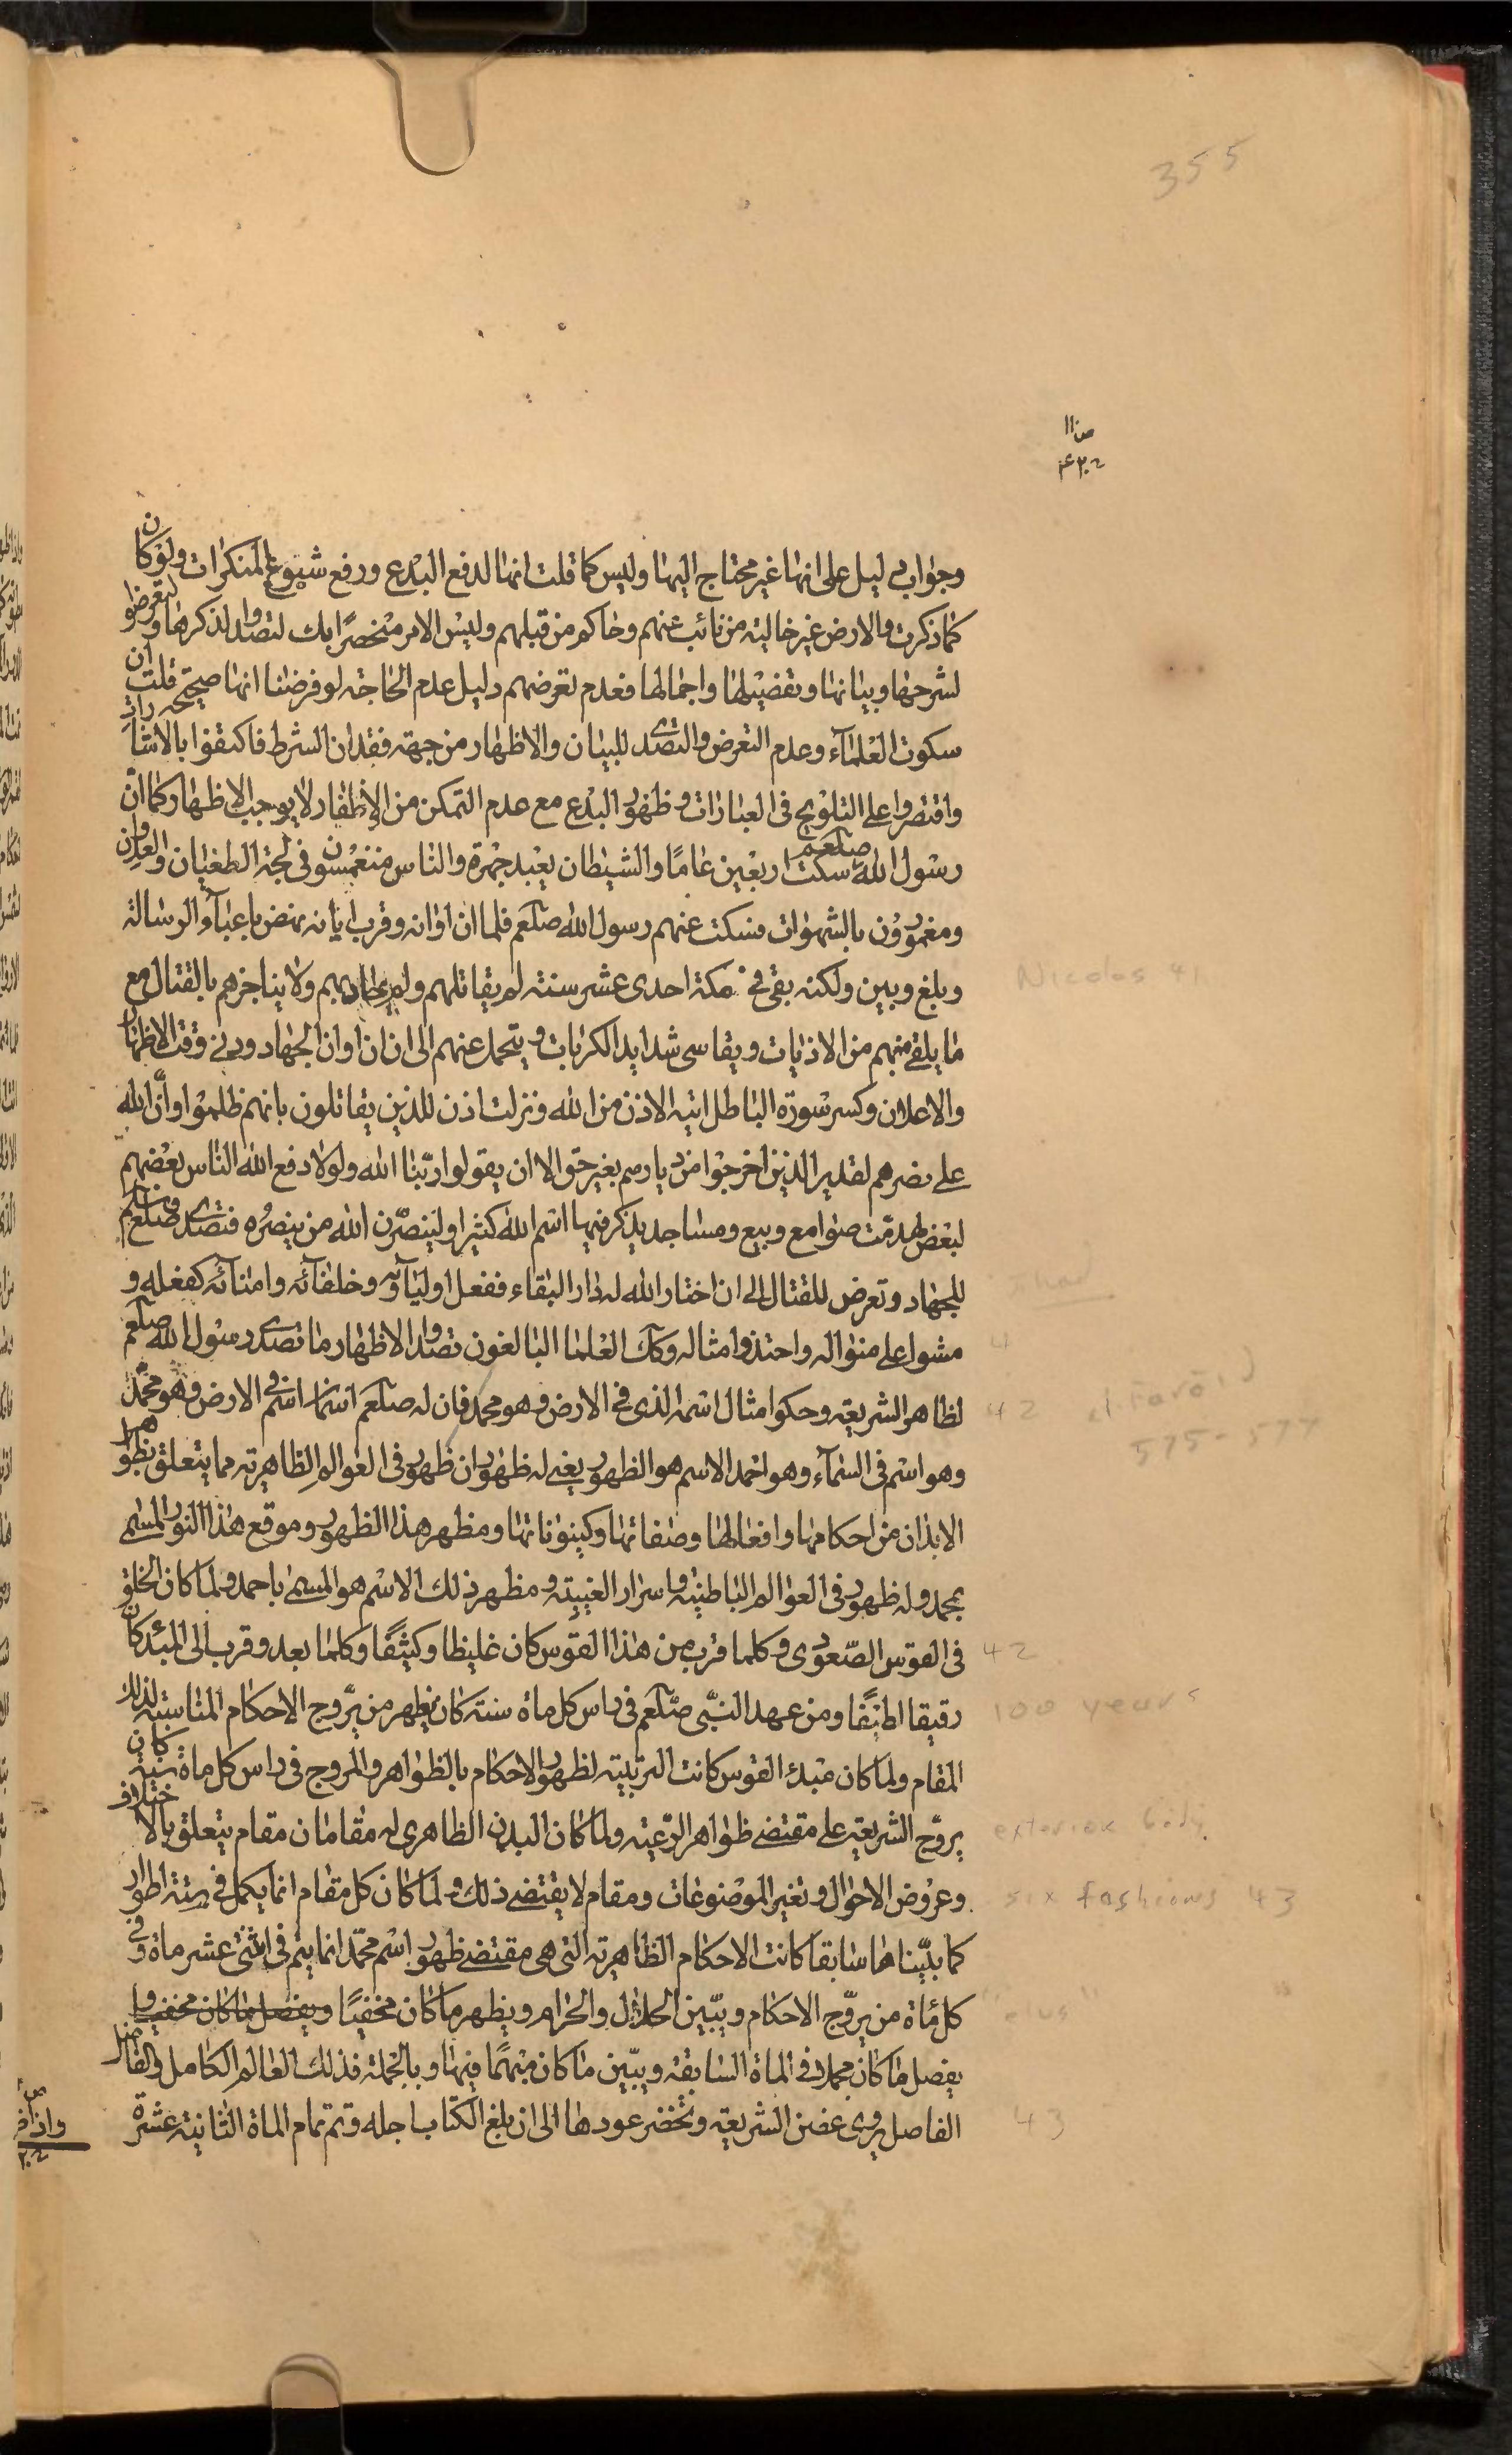 355
ص ١١
وجوابه دليل على انها غير محتاج اليها وليس كما قلت انها لدفع البدع ورفع شيوع المنكرات ولو كان
كما ذكرت والارض غير خالية من نائب عنهم وحاكم من قبلهم وليس الامر منحصرًا بك لتصدوا لذكرها ولتعرضوا
لشرحها وبيانها وتفصيلها واجمالها فعدم تعرضهم دليل عدم الحاجة لو فرضنا انها صحيحة قلت ان
سكوت العلمآء وعدم التعرض والتصدى للبيان والاظهار من جهة فقدان الشرط فاكتفوا بالاشارات
واقتصروا على التلويح فى العبارات وظهور البدع مع عدم التمكن من الاظهار لا يوجب الاظهار كما انّ
رسول الله صلعم سكت اربعين عامًا والشيطان يعبد جهرة والناس منغمسون فى لجة الطغيان والعدوان
ومغمورون بالشهوات فسكت عنهم رسول الله صلعم فلما ان اوانه وقرب ايانه نهض باعبآء الرسالة
وبلغ وبين ولكنه بقى فى مكة احدى عشر سنة لم يقاتلهم ولم يحاربهم ولا يناجزهم بالقتال مع
ما يلقى منهم من الاذيات ويقاسى شدايد الكربات ويتحمل عنهم الى ان ان اوان الجهاد ودنى وقت الاظهار
والاعلان وكسر سورة الباطل اتيه الاذن من الله ونزلت اذن للذين يقاتلون بانهم ظلموا وأنّ الله
على نصرهم لقدير الذين اخرجوا من ديارهم بغير حق الا ان يقولوا ربّنا الله ولولا دفع الله الناس بعضهم
لبعض لهدمّت صوامع وبيع ومساجد يذكر فيها اسم الله كثيرا ولينصرّن الله من ينصره فتصدى صلعم
للجهاد وتعرض للقتال الى ان اختار الله له دار البقاء ففعل اوليآؤه وخلفآئه وامنآئه كفعله و
مشوا على منواله واحتذوا مثاله وكك العلما البالغون تصدوا الاظهار ما تصدى رسول الله صلعم
لظاهر الشريعة وحكوا مثال اسمه الذى فى الارض وهو محمد فان له صلعم اسمان اسم فى الارض وهو محمّد
وهو اسم فى السمآء وهو احمد الاسم هو الظهور يعنى له ظهوران ظهور فى العوالم الظاهرية مما يتعلق بظواهر
الابدان من احكامها وافعالها وصفاتها وكينوناتها ومظهر هذا الظهور وموقع هذا النور المسمى
بمحمد وله ظهور فى العوالم الباطنية واسرار الغيبية ومظهر ذلك الاسم هو المسمى باحمد ولما كان الخلق
فى القوس الصّعودى وكلما قرب من هذا القوس كان غليظا وكيثفًا وكلما بعد وقرب الى المبدء كان
رقيقا لطيفًا ومن عهد النبّى صلعم فى راس كل ماة سنة كان يظهر من يرّوج الاحكام المناسبة لذلك
المقام ولما كان مبدء القوس كانت التربية لظهور الاحكام بالظواهر والمروج فى راس كل ماة سنة كان
يروّج الشريعة على مقتضى ظواهر الرّعية ولما كان البدن الظاهرى له مقامان مقام يتعلق بالاختلاف
وعروض الاحوال وتغير الموضوعات ومقام لا يقتضى ذلك ولما كان كل مقام انما يكمل فى ستة اطوار
كما بيّناها سابقا كانت الاحكام الظاهرية التى هى مقتضى ظهور اسم محمّد انما يتم فى اثنى عشر ماة وفى
كل مأة من يروّج الاحكام ويبيّن الحلال والحرام ويظهر ما كان مخفيًا ويفصل ما كان مخفيا و
يفصل ما كان مجملا فى الماة السابقة ويبيّن ما كان مبهمًا فيها وبالجملة فذلك العالم الكامل والفاضل
الفاصل يروى غصن الشريعة وتخضر عودها الى ان بلغ الكتاب اجله وتم تمام الماة الثانية عشرة
Nicolas 41
42
575-577
42
100 years
exterior body
six fashions 43
43